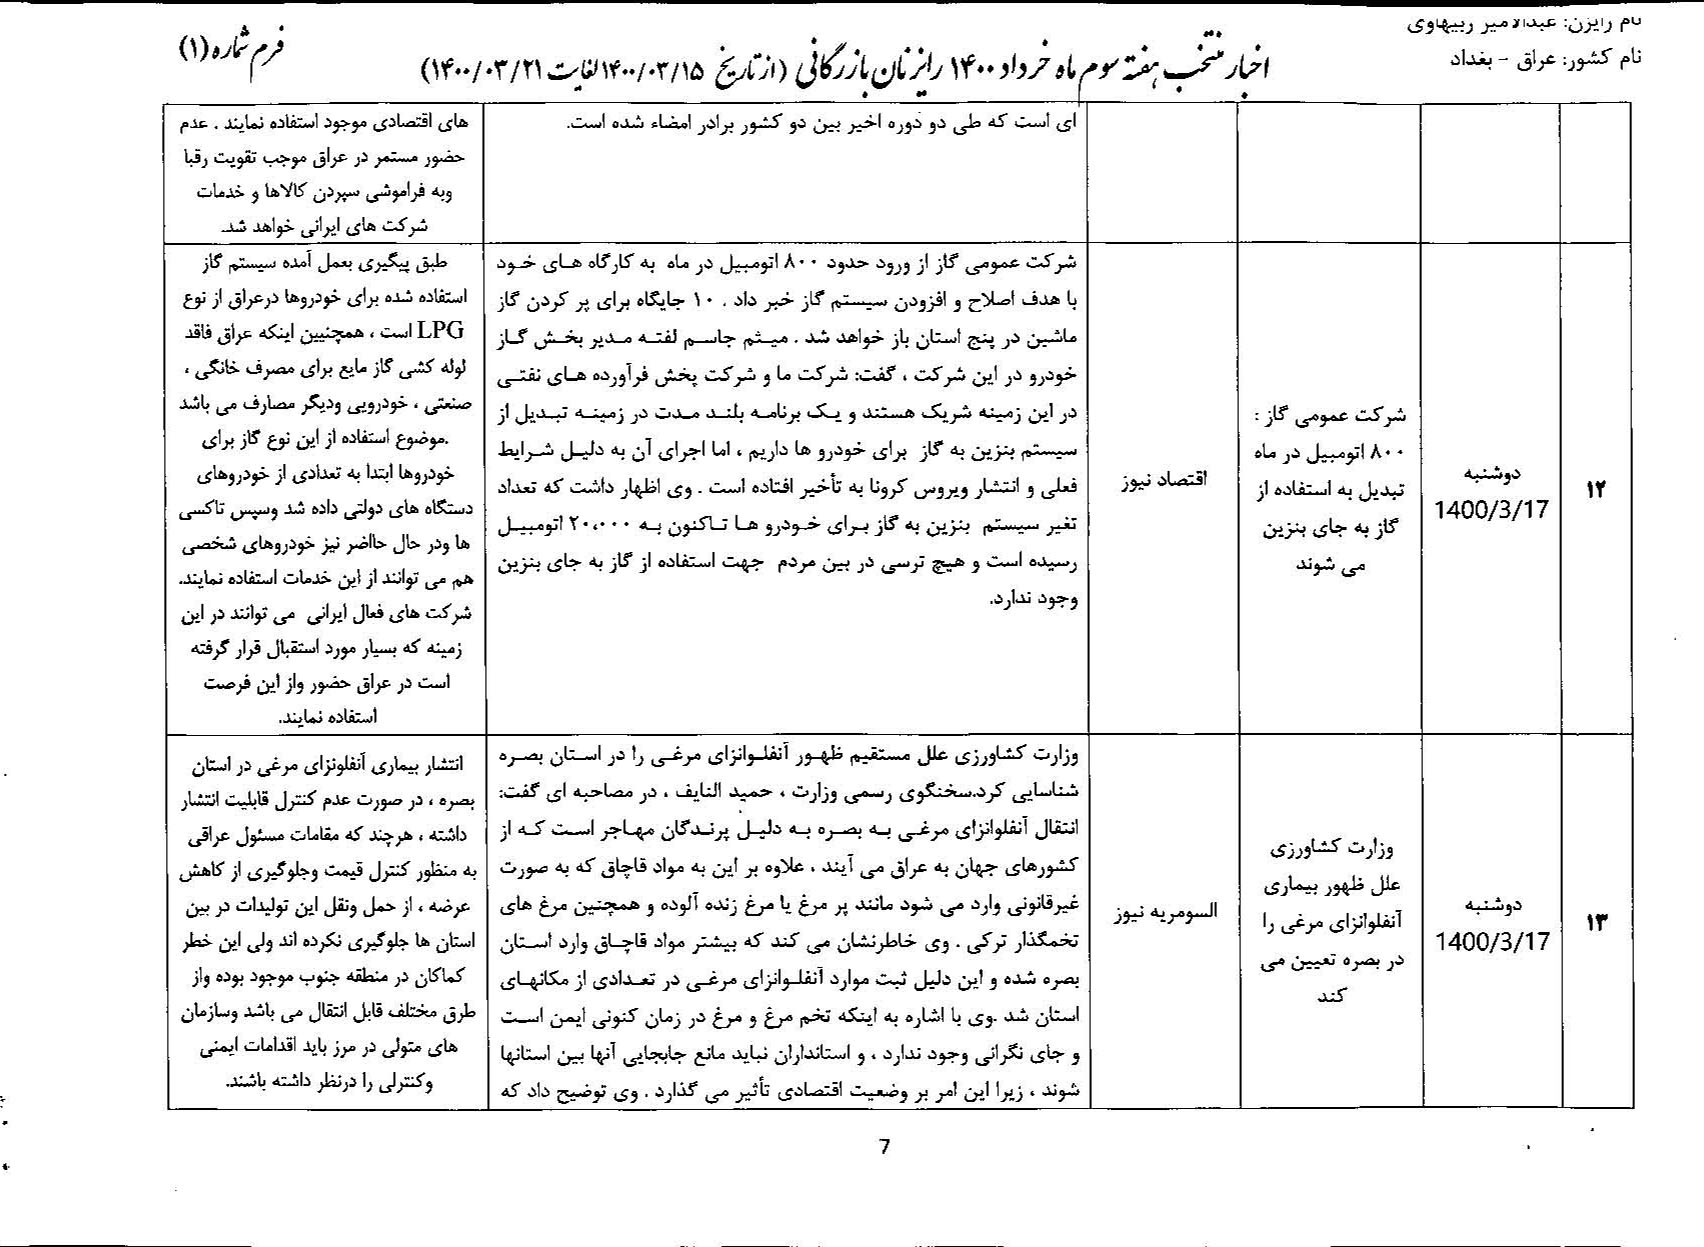 نام رایزن: عبدالامیر ربیهاوی
نام کشور: عراق - بغداد
اخبار منتخب هفته سوم ماه خرداد ۱۴۰۰ رایزنان بازرگانی (از تاریخ ۱۴۰۰/۰۳/۱۵ لغایت ۱۴۰۰/۰۳/۲۱)
فرم شماره (۱)
ای است که طی دو دوره اخیر بین دو کشور برادر امضاء شده است.
های اقتصادی موجود استفاده نمایند . عدم
حضور مستمر در عراق موجب تقویت رقبا
وبه فراموشی سپردن کالاها و خدمات
شرکت های ایرانی خواهد شد.
۱۲
دوشنبه
1400/3/17
شرکت عمومی گاز :
۸۰۰ اتومبیل در ماه
تبدیل به استفاده از
گاز به جای بنزین
می شوند
اقتصاد نیوز
شرکت عمومی گاز از ورود حدود ۸۰۰ اتومبیل در ماه به کارگاه های خود
با هدف اصلاح و افزودن سیستم گاز خبر داد . ۱۰ جایگاه برای پر کردن گاز
ماشین در پنج استان باز خواهد شد . میثم جاسم لفته مدیر بخش گاز
خودرو در این شرکت ، گفت: شرکت ما و شرکت پخش فرآورده های نفتی
در این زمینه شریک هستند و یک برنامه بلند مدت در زمینه تبدیل از
سیستم بنزین به گاز برای خودرو ها داریم ، اما اجرای آن به دلیل شرایط
فعلی و انتشار ویروس کرونا به تأخیر افتاده است . وی اظهار داشت که تعداد
تغیر سیستم بنزین به گاز برای خودرو ها تاکنون به ۲۰،۰۰۰ اتومبیل
رسیده است و هیچ ترسی در بین مردم جهت استفاده از گاز به جای بنزین
وجود ندارد.
طبق پیگیری بعمل آمده سیستم گاز
استفاده شده برای خودروها درعراق از نوع
LPG است ، همچنین اینکه عراق فاقد
لوله کشی گاز مایع برای مصرف خانگی ،
صنعتی ، خودرویی ودیگر مصارف می باشد
.موضوع استفاده از این نوع گاز برای
خودروها ابتدا به تعدادی از خودروهای
دستگاه های دولتی داده شد وسپس تاکسی
ها ودر حال حااضر نیز خودروهای شخصی
هم می توانند از این خدمات استفاده نمایند.
شرکت های فعال ایرانی می توانند در این
زمینه که بسیار مورد استقبال قرار گرفته
است در عراق حضور واز این فرصت
استفاده نمایند.
۱۳
دوشنبه
1400/3/17
وزارت کشاورزی
علل ظهور بیماری
آنفلوانزای مرغی را
در بصره تعیین می
کند
السومریه نیوز
وزارت کشاورزی علل مستقیم ظهور آنفلوانزای مرغی را در استان بصره
شناسایی کرد.سخنگوی رسمی وزارت ، حمید النایف ، در مصاحبه ای گفت:
انتقال آنفلوانزای مرغی به بصره به دلیل پرندگان مهاجر است که از
کشورهای جهان به عراق می آیند ، علاوه بر این به مواد قاچاق که به صورت
غیرقانونی وارد می شود مانند پر مرغ یا مرغ زنده آلوده و همچنین مرغ های
تخمگذار ترکی . وی خاطرنشان می کند که بیشتر مواد قاچاق وارد استان
بصره شده و این دلیل ثبت موارد آنفلوانزای مرغی در تعدادی از مکانهای
استان شد .وی با اشاره به اینکه تخم مرغ و مرغ در زمان کنونی ایمن است
و جای نگرانی وجود ندارد ، و استانداران نباید مانع جابجایی آنها بین استانها
شوند ، زیرا این امر بر وضعیت اقتصادی تأثیر می گذارد . وی توضیح داد که
انتشار بیماری آنفلونزای مرغی در استان
بصره ، در صورت عدم کنترل قابلیت انتشار
داشته ، هرچند که مقامات مسئول عراقی
به منظور کنترل قیمت وجلوگیری از کاهش
عرضه ، از حمل ونقل این تولیدات در بین
استان ها جلوگیری نکرده اند ولی این خطر
کماکان در منطقه جنوب موجود بوده واز
طرق مختلف قابل انتقال می باشد وسازمان
های متولی در مرز باید اقدامات ایمنی
وکنترلی را درنظر داشته باشند.
7